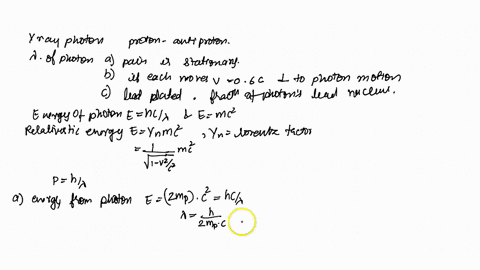 γ ray photon proton - anti proton.
λ of photon a) pair is stationary.
b) if each moves v = 0.6c ⊥ to photon motion
c) lead plated. fract of photon's lead nucleus.
Energy of photon E = hc/λ & E = mc²
Relativistic energy E = γₙmc² , γₙ = lorentz factor
= 1/√(1-v²/c²) mc²
P = h/λ
a) energy from photon E = (2mₚ)·c² = hc/λ
λ = h/(2mₚ·c)